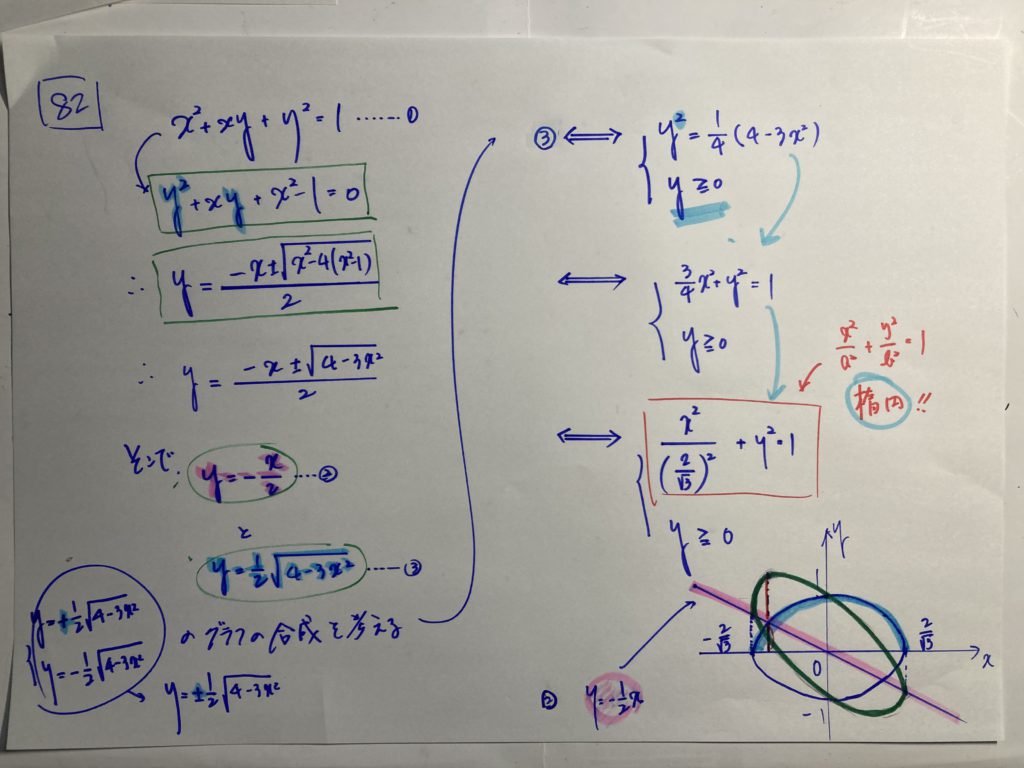 82
x²+xy+y²=1 ……①
y²+xy+x²-1=0
∴ y = (-x±√(x²-4(x²-1)))/2
∴ y = (-x±√(4-3x²))/2
そこで.
y=-x/2 …②
と
y=1/2√(4-3x²) …③
のグラフの合成を考える
y=+1/2√(4-3x²)
y=-1/2√(4-3x²)
y=±1/2√(4-3x²)
③ ⟺ { y²=1/4(4-3x²)
y≧0
⟺ { 3/4x²+y²=1
y≧0
x²/a²+y²/b²=1
楕円!!
⟺ { x²/(2/√3)²+y²=1
y≧0
y
1
-2/√3
2/√3
0
x
-1
② y=-1/2x